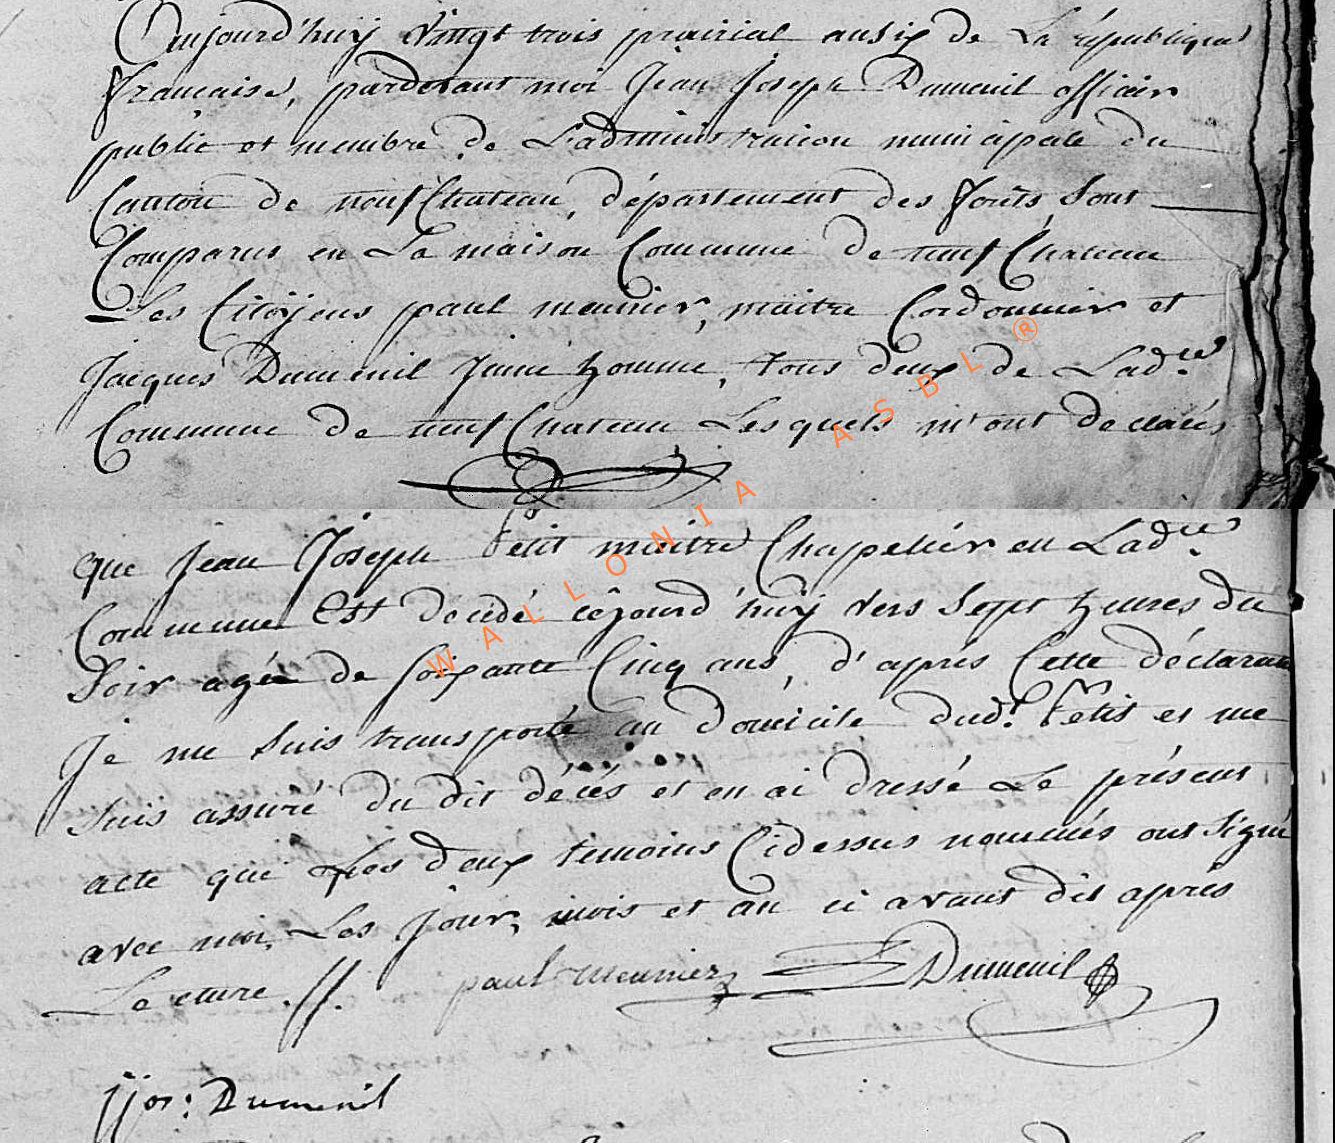 Aujourd'huy vingt trois prairial an six de La république
française, pardevant moi Jean Joseph Dumenil officier
public et membre de L'administration municipale du
Canton de neufChateau, département des forêts, Sont
Comparus en La maison Commune de neufChateau
Les Citoÿens paul meunier, maitre Cordonnier et
Jacques Dumenil Jeune homme, tous deux de Ladite
Commune de neufChateau Lesquels m'ont declarés
que Jean Joseph Petit maitre Chapelier en Ladite
Commune Est decedé cejourd'huÿ vers Sept heures du
Soir agée de Soixante Cinq ans, d'aprés Cette déclaration
Je me suis transporté au domicile dudt Petit et me
Suis assuré du dit décés et en ai dressé Le présent
acte que Les deux temoins Cidessus nommés ont Signé
avec moi, Les Jour, mois et an ci avant dit aprés
Lecture.//. paul meunier Dumenil
jjos: Dumenil
WALLONIA ASBL ®